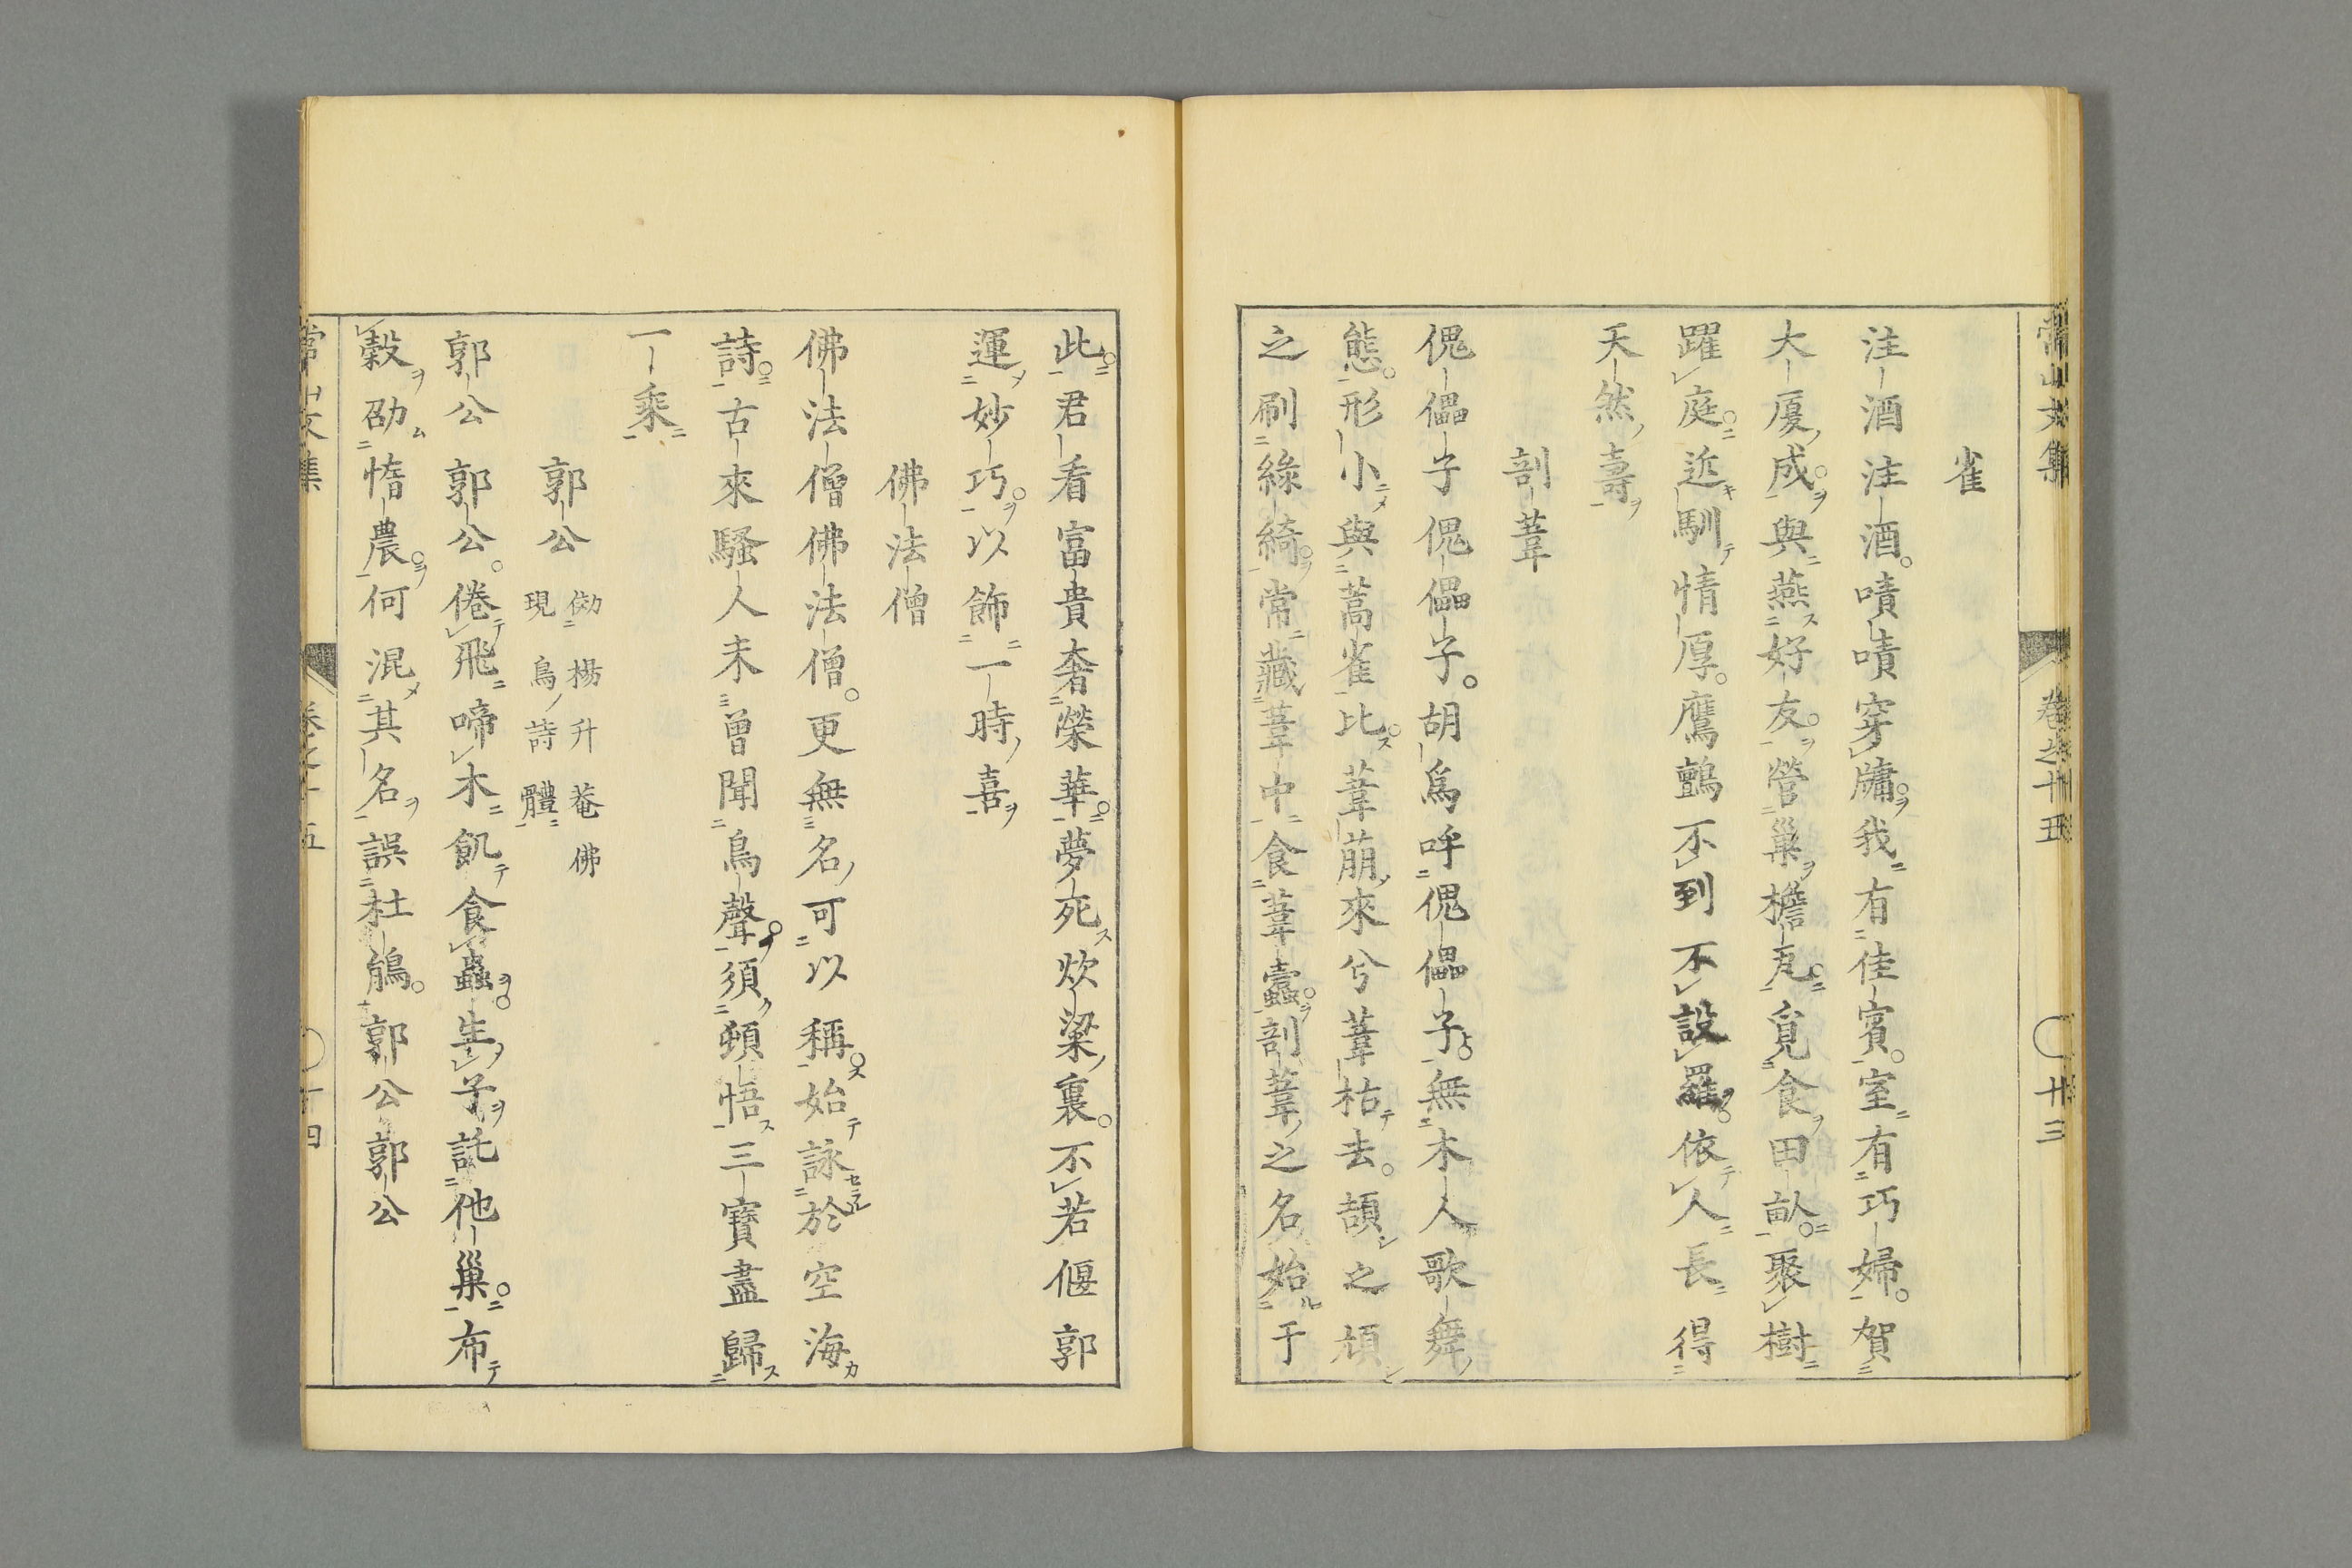 常山文集 卷之十五 〇廿三
雀
注酒注酒嘖嘖穿牗我有佳賓室有巧婦賀
大厦成與燕好友營巢檐瓦覓食田畝聚樹
躍庭近馴情厚鷹鸇不到不設羅依人長得
天然壽
剖葦
傀儡子傀儡子胡爲呼傀儡子無木人歌舞
態形小與蒿雀比葦萠來兮葦枯去頡之頏
之刷綠綺常藏葦中食葦蠧剖葦之名始于
此君看富貴奢榮華夢死炊粱裏不若偃郭
運妙巧以飾一時喜
佛法僧
佛法僧佛法僧更無名可以稱始詠於空海
詩古來騷人未曾聞鳥聲須頓悟三寶盡歸
一乘
郭公 倣楊升菴佛現鳥詩體
郭公郭公倦飛啼木飢食蟲生子託他巢布
穀劭惰農何混其名誤杜鵑郭公郭公
常山文集 卷之十五 〇十四